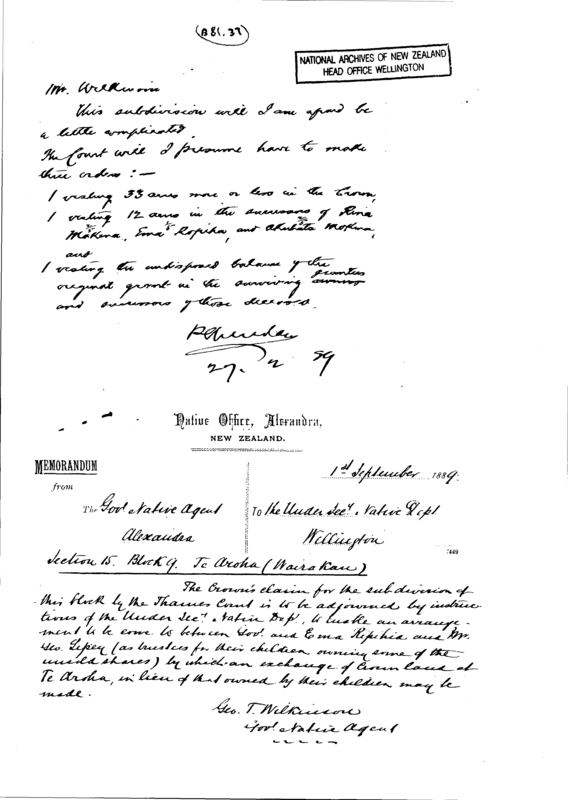 (B 81. 37)
NATIONAL ARCHIVES OF NEW ZEALAND
HEAD OFFICE WELLINGTON
Mr. Wilkinson
This subdivision will I am afraid be
a little complicated.
The Court will I presume have to make
three orders : —
1 vesting 33 acres more or less in the Crown,
1 vesting 12 acres in the successors of Rina
Mokena, Ema Ropiha, and Mokena,
and
1 vesting the undisposed balance of the
original grant in the surviving grantees
and successors of those deceased.
27. 2 89
Native Office, Alexandra,
NEW ZEALAND.
MEMORANDUM
from
1st September 1889.
The Govt Native Agent
Alexandra
To the Under Secy. Native Dept
Wellington
Section 15. Block 9. Te Aroha (Wairakau)
The Crown's claim for the subdivision of
this block by the Thames Court is to be adjourned by instruc-
tions of the Under Secy. Native Dept. to enable an arrange-
ment to be come to between Govt. and Ema and Mr.
Geo. Lipsey (as trustees for their children owning some of the
unsold shares) by which an exchange of Crown land at
Te Aroha, in lieu of that owned by their children may be
made.
Geo. T. Wilkinson
Govt Native Agent